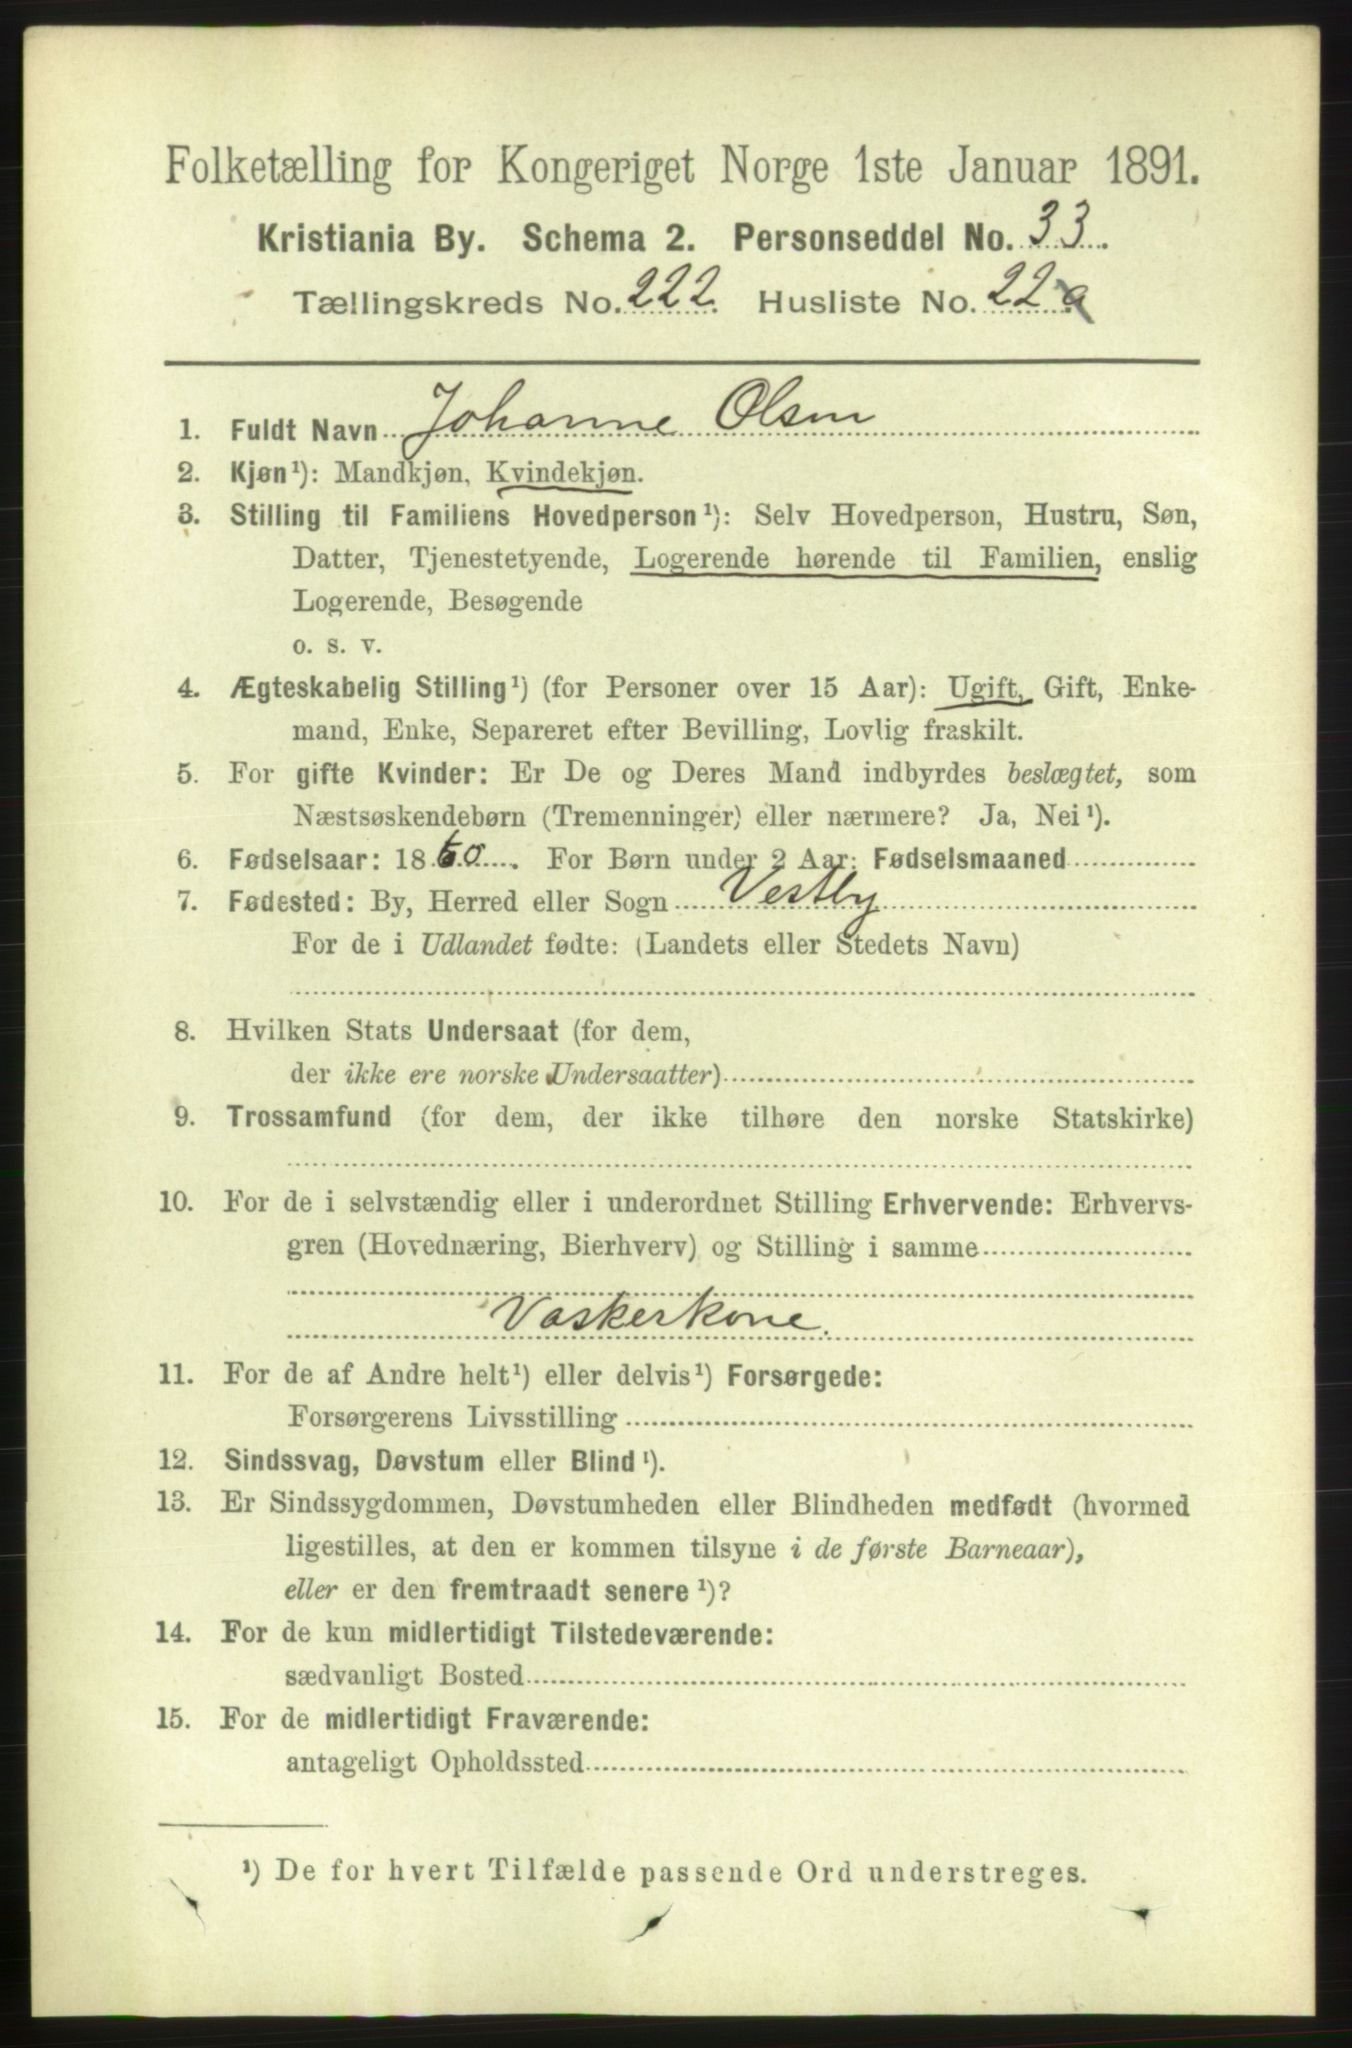 Folketælling for Kongeriget Norge 1ste Januar 1891.
Kristiania By. Schema 2. Personseddel No. 33.
Tællingskreds No. 222. Husliste No. 22a
1. Fuldt Navn Johanne Olsen
2. Kjøn¹): Mandkjøn, Kvindekjøn.
3. Stilling til Familiens Hovedperson¹): Selv Hovedperson, Hustru, Søn,
Datter, Tjenestetyende, Logerende hørende til Familien, enslig
Logerende, Besøgende
o. s. v.
4. Ægteskabelig Stilling¹) (for Personer over 15 Aar): Ugift, Gift, Enke-
mand, Enke, Separeret efter Bevilling, Lovlig fraskilt.
5. For gifte Kvinder: Er De og Deres Mand indbyrdes beslægtet, som
Næstsøskendebørn (Tremenninger) eller nærmere? Ja, Nei¹).
6. Fødselsaar: 1860. For Børn under 2 Aar: Fødselsmaaned
7. Fødested: By, Herred eller Sogn Vestby
For de i Udlandet fødte: (Landets eller Stedets Navn)
8. Hvilken Stats Undersaat (for dem,
der ikke ere norske Undersaatter)
9. Trossamfund (for dem, der ikke tilhøre den norske Statskirke)
10. For de i selvstændig eller i underordnet Stilling Erhvervende: Erhvervs-
gren (Hovednæring, Bierhverv) og Stilling i samme
Vaskerkone.
11. For de af Andre helt¹) eller delvis¹) Forsørgede:
Forsørgerens Livsstilling
12. Sindssvag, Døvstum eller Blind¹).
13. Er Sindssygdommen, Døvstumheden eller Blindheden medfødt (hvormed
ligestilles, at den er kommen tilsyne i de første Barneaar),
eller er den fremtraadt senere¹)?
14. For de kun midlertidigt Tilstedeværende:
sædvanligt Bosted
15. For de midlertidigt Fraværende:
antageligt Opholdssted
¹) De for hvert Tilfælde passende Ord understreges.